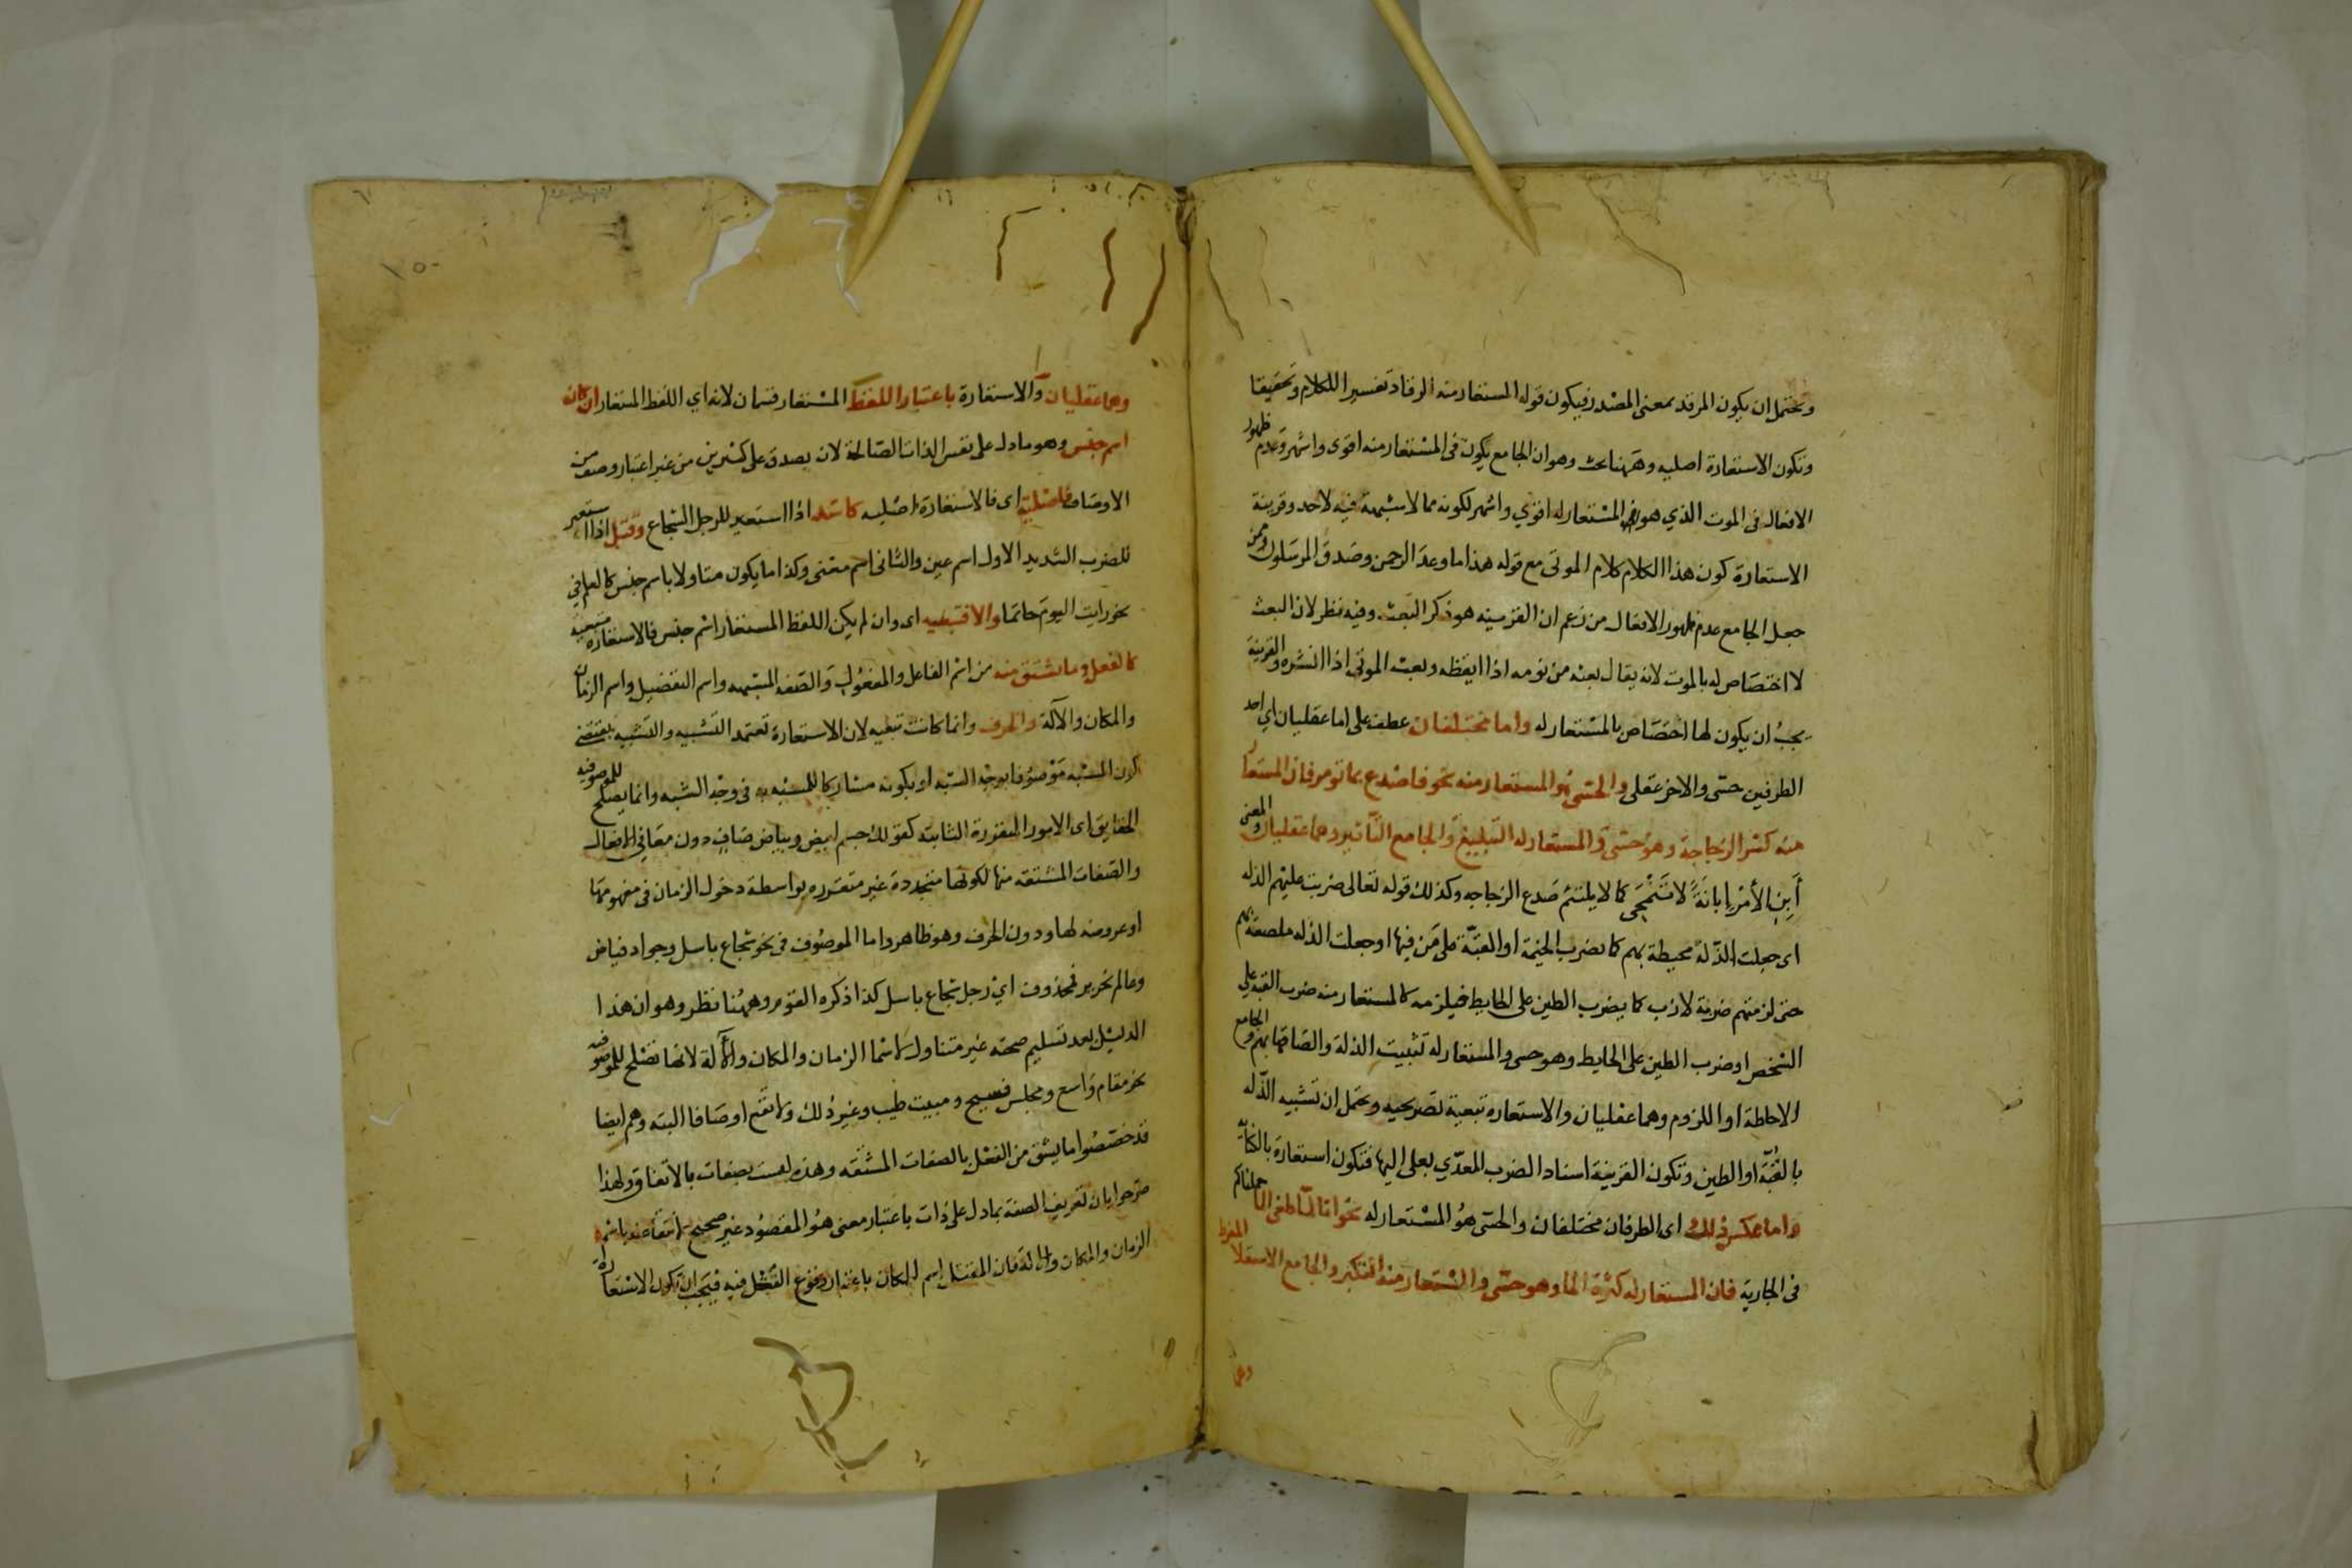 ويحتمل ان يكون المرقد بمعنى المصدر فيكون قوله المستعار منه الرقاد تفسير الكلام وتحقيقا
وتكون الاستعارة اصليه وههنا بحث وهو ان الجامع يكون فى المستعار منه اقوى واشهر وعدم ظهور
الافعال فى الموت الذي هو المستعار له اقوي واشهر لكونه مما لا شبهة فيه لاحد وقرينة
الاستعارة كون هذا الكلام كلام الموتى مع قوله هذا ما وعد الرحمن وصدق المرسلون ومن
جعل الجامع عدم ظهور الافعال من زعم ان القرينه هو ذكر البعث وفيه نظر لان البعث
لا اختصاص له بالموت لانه يقال بعثه من نومه اذا ايقظه وبعث الموتى اذا انشره والقرينة
يجب ان يكون لها اختصاص بالمستعار له واما مختلفان عطف على اما عقليان اي احد
الطرفين حسى والاخر عقلى والحسى هو المستعار منه نحو فاصدع بما تومر فان المستعار
منه كسر الزجاجة وهو حسى والمستعار له التبليغ والجامع التاثير وهما عقليان والمعنى
أبن الأمر إبانة لا تنمحى كما لا يلتئم صدع الزجاجه وكذلك قوله تعالى ضربت عليهم الذله
اى جعلت الذلة محيطة بهم كما يضرب الخيمة او القبة على من فيها او جعلت الذله ملصقة بهم
حتى لزمتهم ضربة لازب كما يضرب الطين على الحايط فيلزمه كالمستعار منه ضرب القبة على
الشخص او ضرب الطين على الحايط وهو حسى والمستعار له تثبيت الذلة والصاقها بهم والجامع
الاحاطة او اللزوم وهما عقليان والاستعاره تبعية تصريحيه ويحتمل ان تشبيه الذله
بالقبة او الطين وتكون القرينة اسناد الضرب المعدي بعلى اليها فتكون استعارة بالكنايه
واما عكس ذلك اى الطرفان مختلفان والحسى هو المستعار له نحو انا لما طغى الما حملناكم
فى الجارية فان المستعار له كثرة الما وهو حسى والمستعار منه التكبر والجامع الاستعلا المفرط
وهما
وهما عقليان والاستعارة باعتبار اللفظ المستعار قسمان لانه اي اللفظ المستعار ان كان
اسم جنس وهو ما دل على نفس الذات الصالحة لان يصدق على كثيرين من غير اعتبار وصف من
الاوصاف فاصلية اى فالاستعارة اصليه كاسد اذا استعير للرجل الشجاع وقتل اذا استعير
للضرب الشديد الاول اسم عين والثانى اسم معنى وكذا ما يكون متاولا باسم جنس كالعلم في
نحو رايت اليوم حاتما والا فتبعيه اى وان لم يكن اللفظ المستعار اسم جنس فالاستعاره تبعيه
كالفعل وما يشتق منه من اسم الفاعل والمفعول والصفه المشبهه واسم التفضيل واسم الزمان
والمكان والآلة والحرف وانما كانت تبعيه لان الاستعارة تعتمد التشبيه والتشبيه يقتضى
كون المشبه موصوفا بوجه الشبه او بكونه مشاركا للمشبه به فى وجه الشبه وانما يصلح للموصوفيه
الحقايق اى الامور المتقررة الثابتة كقولك جسم ابيض وبياض صاف دون معانى الافعال
والصفات المشتقه منها لكونها متجددة غير متقرره بواسطة دخول الزمان فى مفهومها
او عروضه لها ودون الحرف وهو ظاهر واما الموصوف فى نحو شجاع باسل وجواد فياض
وعالم نحرير فمحذوف اي رجل شجاع باسل كذا ذكره القوم وههنا نظر وهو ان هذا
الدليل بعد تسليم صحته غير متناول لاسما الزمان والمكان والآلة لانها تصلح للموصوفيه
نحو مقام واسع ومجلس فسيح ومبيت طيب وغير ذلك ولا تقع اوصافا البته وهم ايضا
قد خصصوا ما يشتق من الفعل بالصفات المشتقه وهذه ليست بصفات بالاتفاق ولهذا
صرحوا بان تعريف الصفة بما دل على ذات باعتبار معنى هو المقصود غير صحيح لانتقاضه باسم
الزمان والمكان والالة فان المقتل اسم للمكان باعتبار وقوع القتل فيه فيجب ان تكون الاستعارة